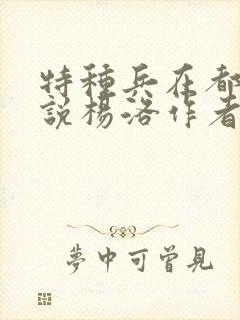 特種兵在都
說楊洛作者
夢中可曾見